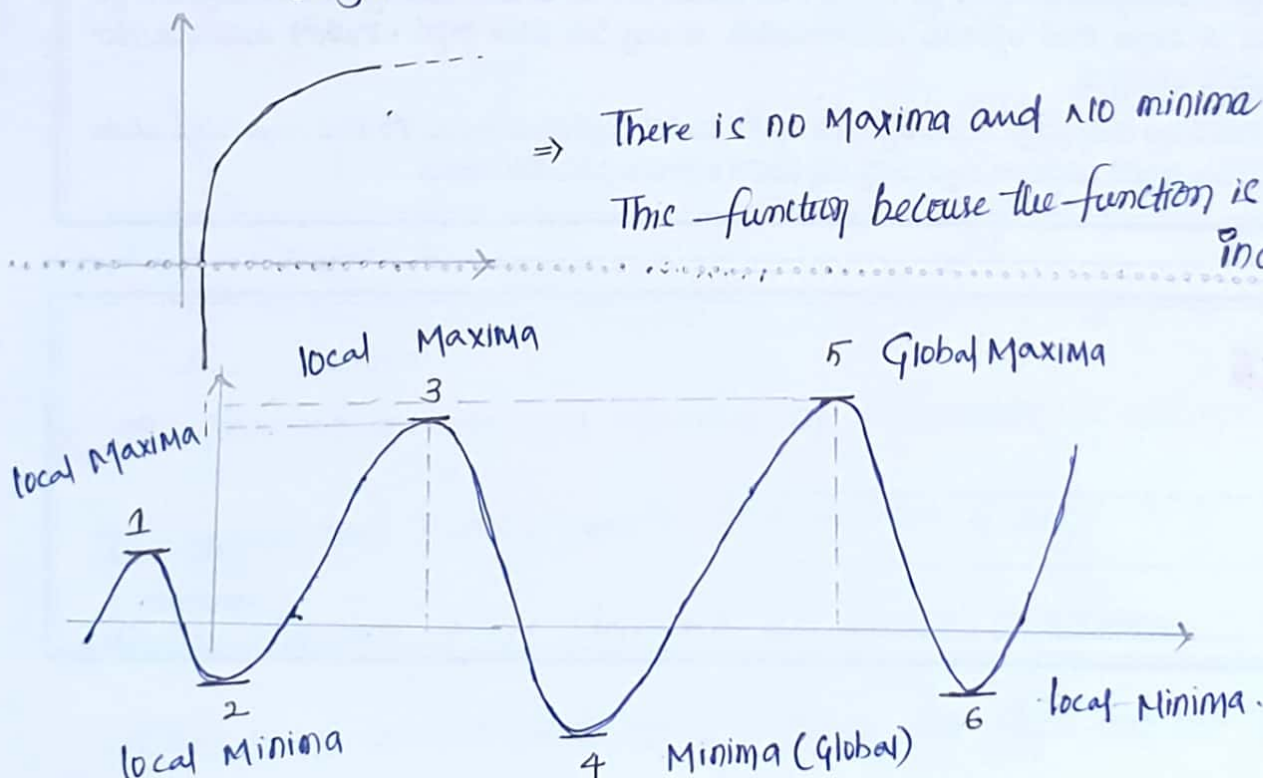 ⇒ There is no Maxima and NO minima
This function because the function is
local Maxima
5 Global Maxima
3
local Maxima
1
2
local Minima
4
Minima (Global)
6
local Minima.